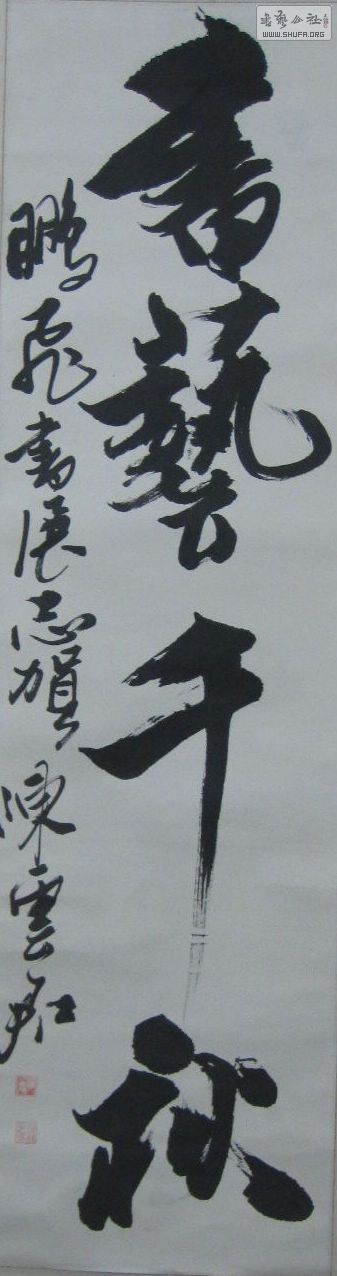 書藝千秋
鵬飛書展志賀 陳雲君
書藝公社
WWW.SHUFA.ORG